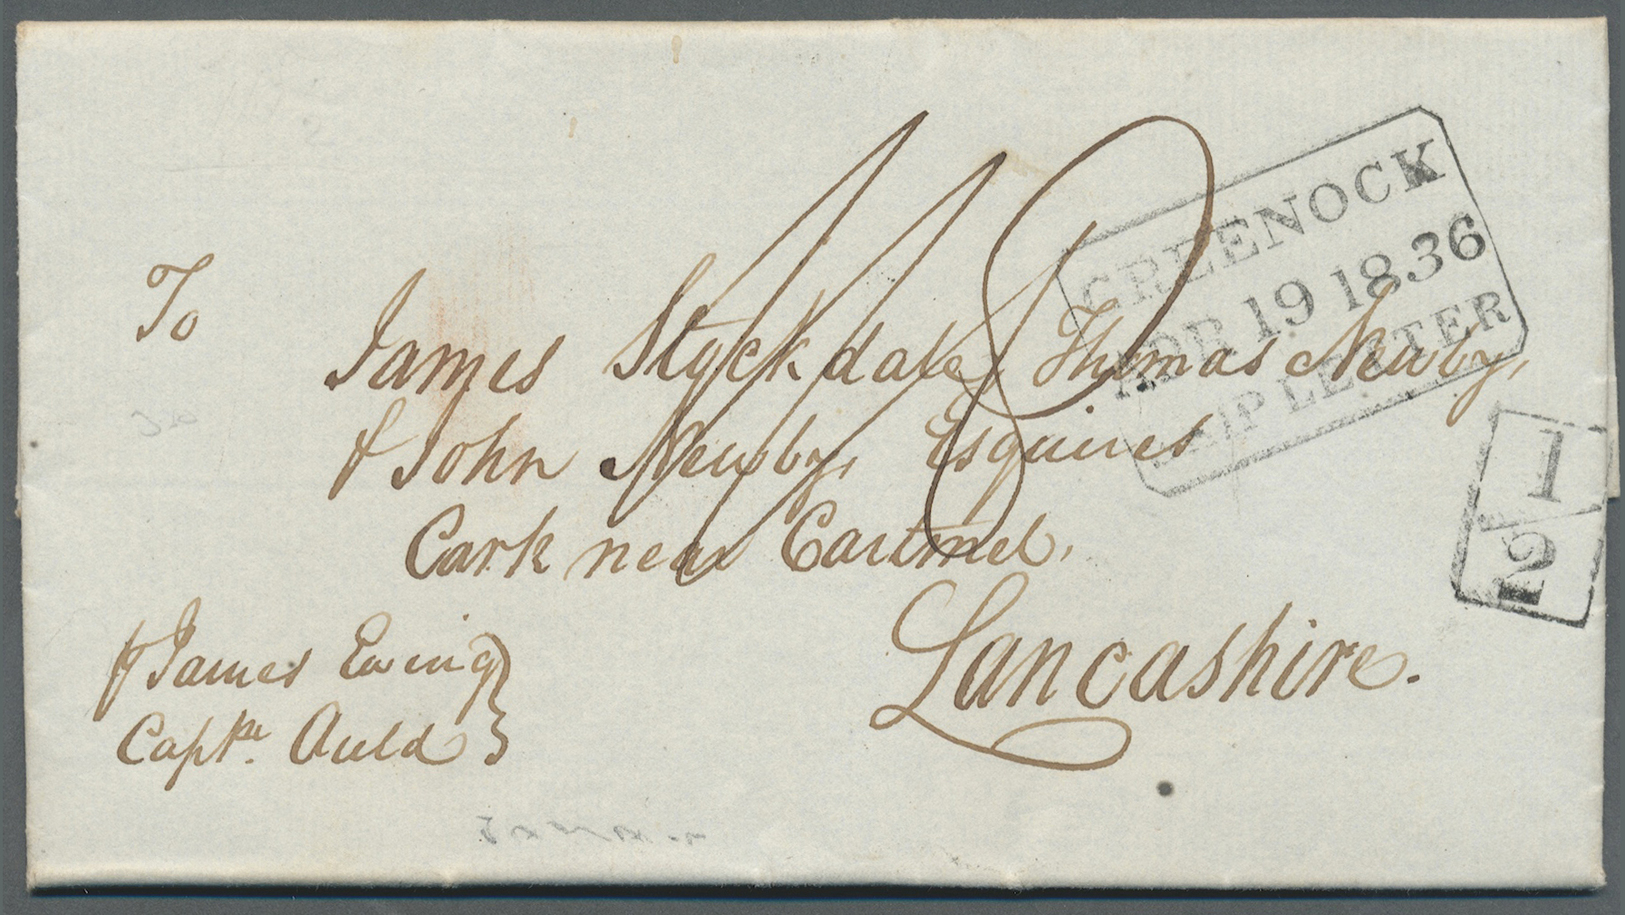 GREENOCK
APR 19 1836
SHIP LETTER
To
James Stockdale, Thomas Newby,
& John Newby, Esquires
Cark near Cartmel,
Lancashire.
1/2
p James Ewing
Captn. Auld